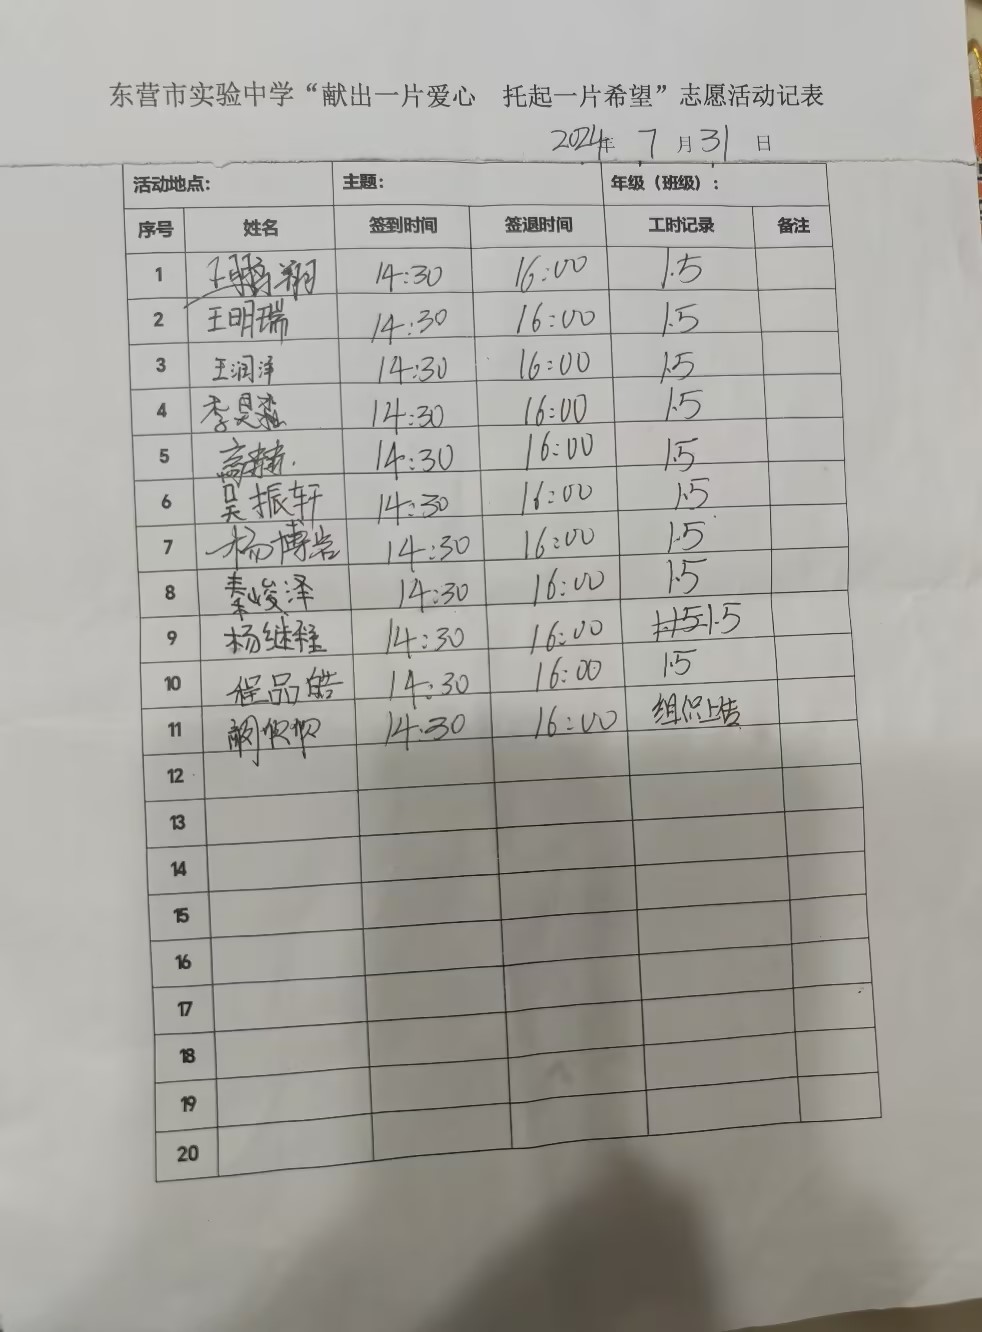 东营市实验中学“献出一片爱心 托起一片希望”志愿活动记表
2024年 7 月 31 日
活动地点： 主题： 年级（班级）：
序号 姓名 签到时间 签退时间 工时记录 备注
1 王鹏翔 14:30 16:00 1.5
2 王明瑞 14:30 16:00 1.5
3 王润泽 14:30 16:00 1.5
4 李昊 14:30 16:00 1.5
5 高赫. 14:30 16:00 1.5
6 吴振轩 14:30 16:00 1.5
7 杨博岩 14:30 16:00 1.5
8 秦峻泽 14:30 16:00 1.5
9 杨继程 14:30 16:00 1.5
10 程品皓 14:30 16:00 1.5
11 14:30 16:00 组织上传
12
13
14
15
16
17
18
19
20